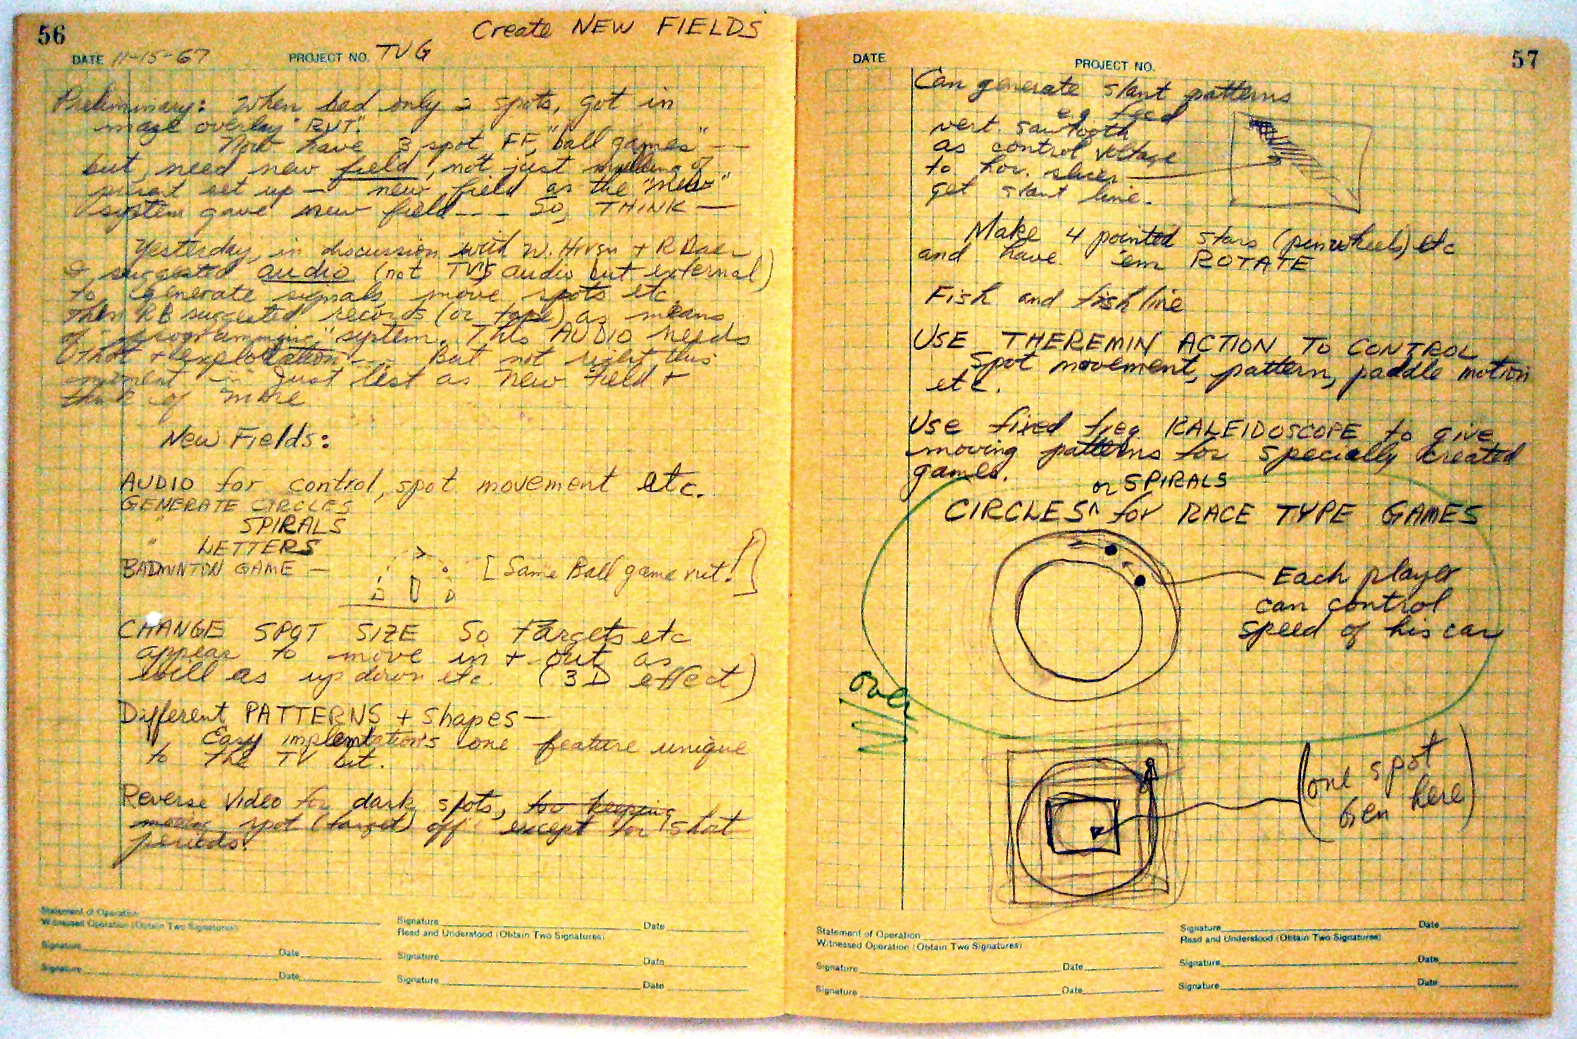 56
Create NEW FIELDS
DATE 11-15-67 PROJECT NO. TVG
Preliminary: When had only 2 spots, got in
maze overlay "RUT".
Now have 3 spot FF, "ball games" --
but, need new field, not just of
set up - new field as the "new"
system gave new field --- So, THINK —
Yesterday, in discussion with W. + R Baer
I suggested audio (not TV's audio but external)
to generate signals, move spots etc.
Then RB suggested records (or tape) as means
of "programming" system. This AUDIO needs
thot + exploitation -- But not right this
moment in just list as new field +
think of more
New Fields:
AUDIO for control, spot movement etc.
GENERATE CIRCLES
" SPIRALS
" LETTERS
BADMINTON GAME — [Same Ball game rut!]
CHANGE SPOT SIZE SO Targets etc
appear to move in + out as
well as up down etc. (3D effect)
Different PATTERNS + shapes —
Easy one feature unique
to the TV bit.
Reverse Video for dark spots, for keeping
moving spot (target) off except for short
periods.
Statement of Operation
Witnessed Operation (Obtain Two Signatures)
Signature Date
Signature Date
Signature Date
Read and Understood (Obtain Two Signatures)
Signature Date
Signature Date
57
DATE PROJECT NO.
Can generate slant patterns
e.g. feed
vert. sawtooth
as control voltage
to hor. slicer
get slant line.
Make 4 pointed stars (pinwheels) etc
and have 'em ROTATE
Fish and fishline
USE THEREMIN ACTION TO CONTROL
Spot movement, pattern, paddle motion
etc.
Use fixed freq. KALEIDOSCOPE to give
moving patterns for specially created
games.
or SPIRALS
CIRCLES ^ for RACE TYPE GAMES
Each player
can control
speed of his car
over
(one spot
here)
Statement of Operation
Witnessed Operation (Obtain Two Signatures)
Signature Date
Signature Date
Signature Date
Read and Understood (Obtain Two Signatures)
Signature Date
Signature Date